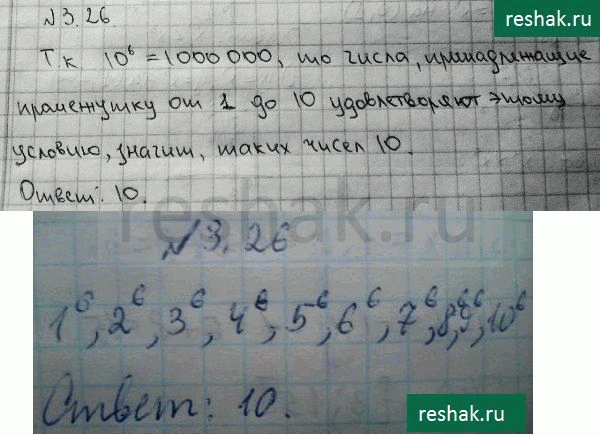 reshak.ru
№3.26
Т.к 10⁶ = 1000 000, то числа, принадлежащие
промежутку от 1 до 10 удовлетворяют этому
условию, значит, таких чисел 10.
Ответ: 10.
reshak.ru
№3.26
1⁶, 2⁶, 3⁶, 4⁶, 5⁶, 6⁶, 7⁶, 8⁶, 9⁶, 10⁶
Ответ: 10.
reshak.ru